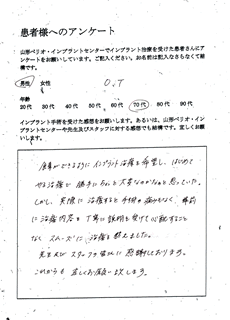 患者様へのアンケート
山形ペリオ・インプラントセンターでインプラント治療を受けた患者さんにア
ンケートをお願いしています。ご記入ください。お名前は記入なさらなくて結
構です。
男性 女性 O.T
年齢
20代 30代 40代 50代 60代 70代 80代 90代
インプラント手術を受けた感想をお願いします。あるいは、山形ペリオ・イン
プラントセンターや先生及びスタッフに対する感想でも結構です。宜しくお願
いします。
食事ができるようにインプラント治療を希望し、はじめて
やる治療で 勝手にちょっと大変なのかなぁと思っていた。
しかし、実際に治療すると手術の痛みもなく、事前
に治療内容を丁寧に説明を受けて心配すること
なく スムーズに 治療を終えました。
先生及び スタッフの皆さんに 感謝しております。
これからも 宜しくお願い致します。